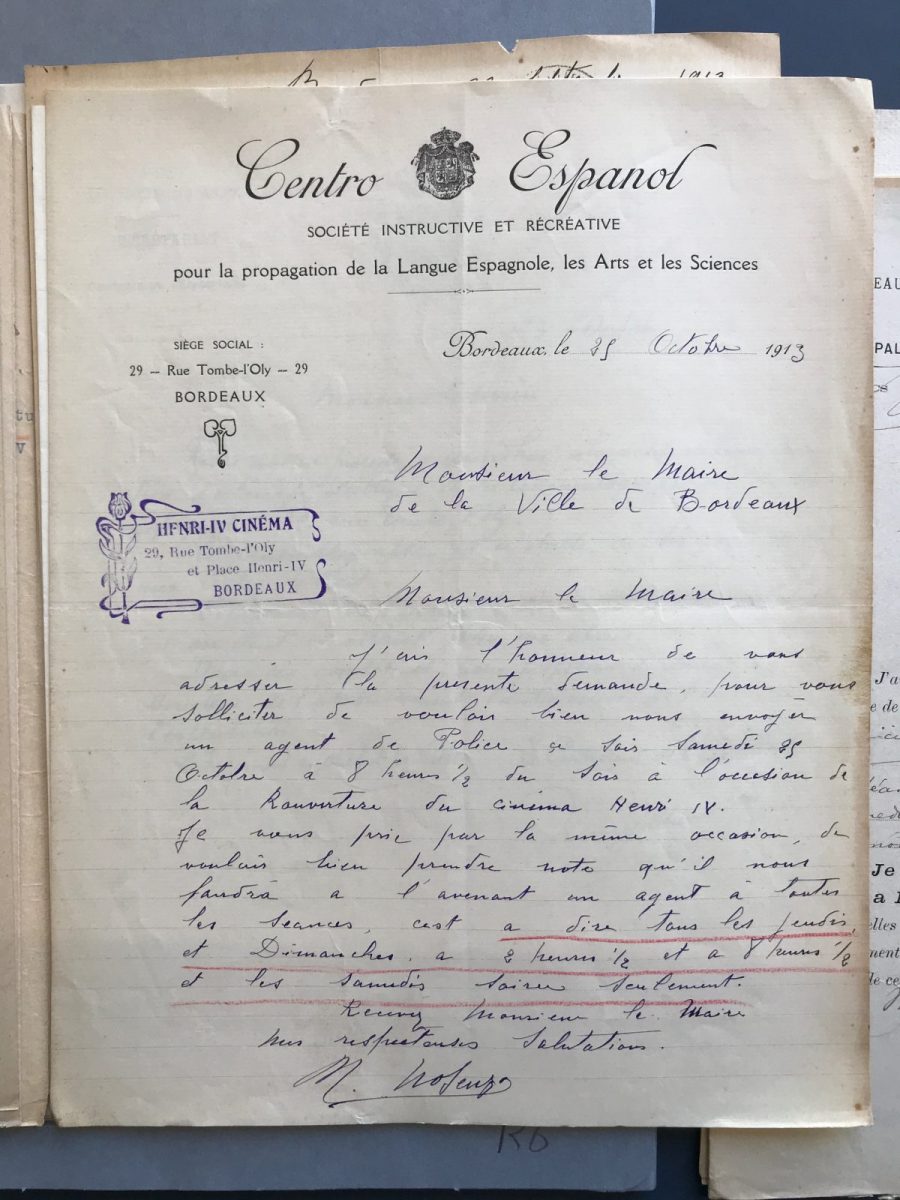 1913
Centro Espanol
SOCIÉTÉ INSTRUCTIVE ET RÉCRÉATIVE
pour la propagation de la Langue Espagnole, les Arts et les Sciences
SIÈGE SOCIAL :
29 — Rue Tombe-l'Oly — 29
BORDEAUX
Bordeaux, le 25 Octobre 1913
Monsieur le Maire
de la Ville de Bordeaux
HENRI-IV CINÉMA
29, Rue Tombe-l'Oly
et Place Henri-IV
BORDEAUX
Monsieur le Maire
l'honneur de vous
adresser la presente demande, pour vous
solliciter de vouloir bien nous envoyer
un agent de Police ce soir Samedi 25
Octobre à 8 heures 1/2 du soir à l'occasion de
la Réouverture du cinéma Henri IV.
Je vous prie par la même occasion de
vouloir bien prendre note qu'il nous
faudra a l'avenant un agent à toutes
les seances, cest a dire tous les jeudis
et Dimanches. a 2 heures 1/2 et a 8 heures 1/2
et les samedis soiree seulement.
Recevez Monsieur le Maire
mes respectueuses Salutations.
M.
EAU
PAL
J'a
e de
Je
a l
elles
ment
de ce